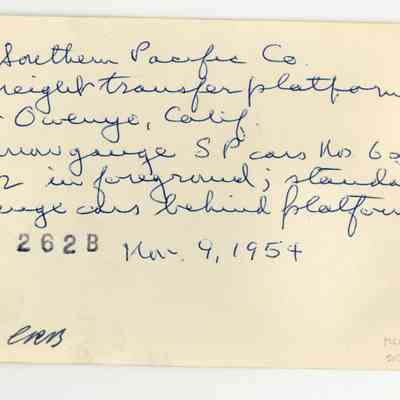 Southern Pacific Co.
reight transfer platform
Owenyo, Calif.
rrow gauge SP cars Nos. 6
2 in foreground; standa
uge cars behind platfor
262B Nov. 9, 1954
CRB